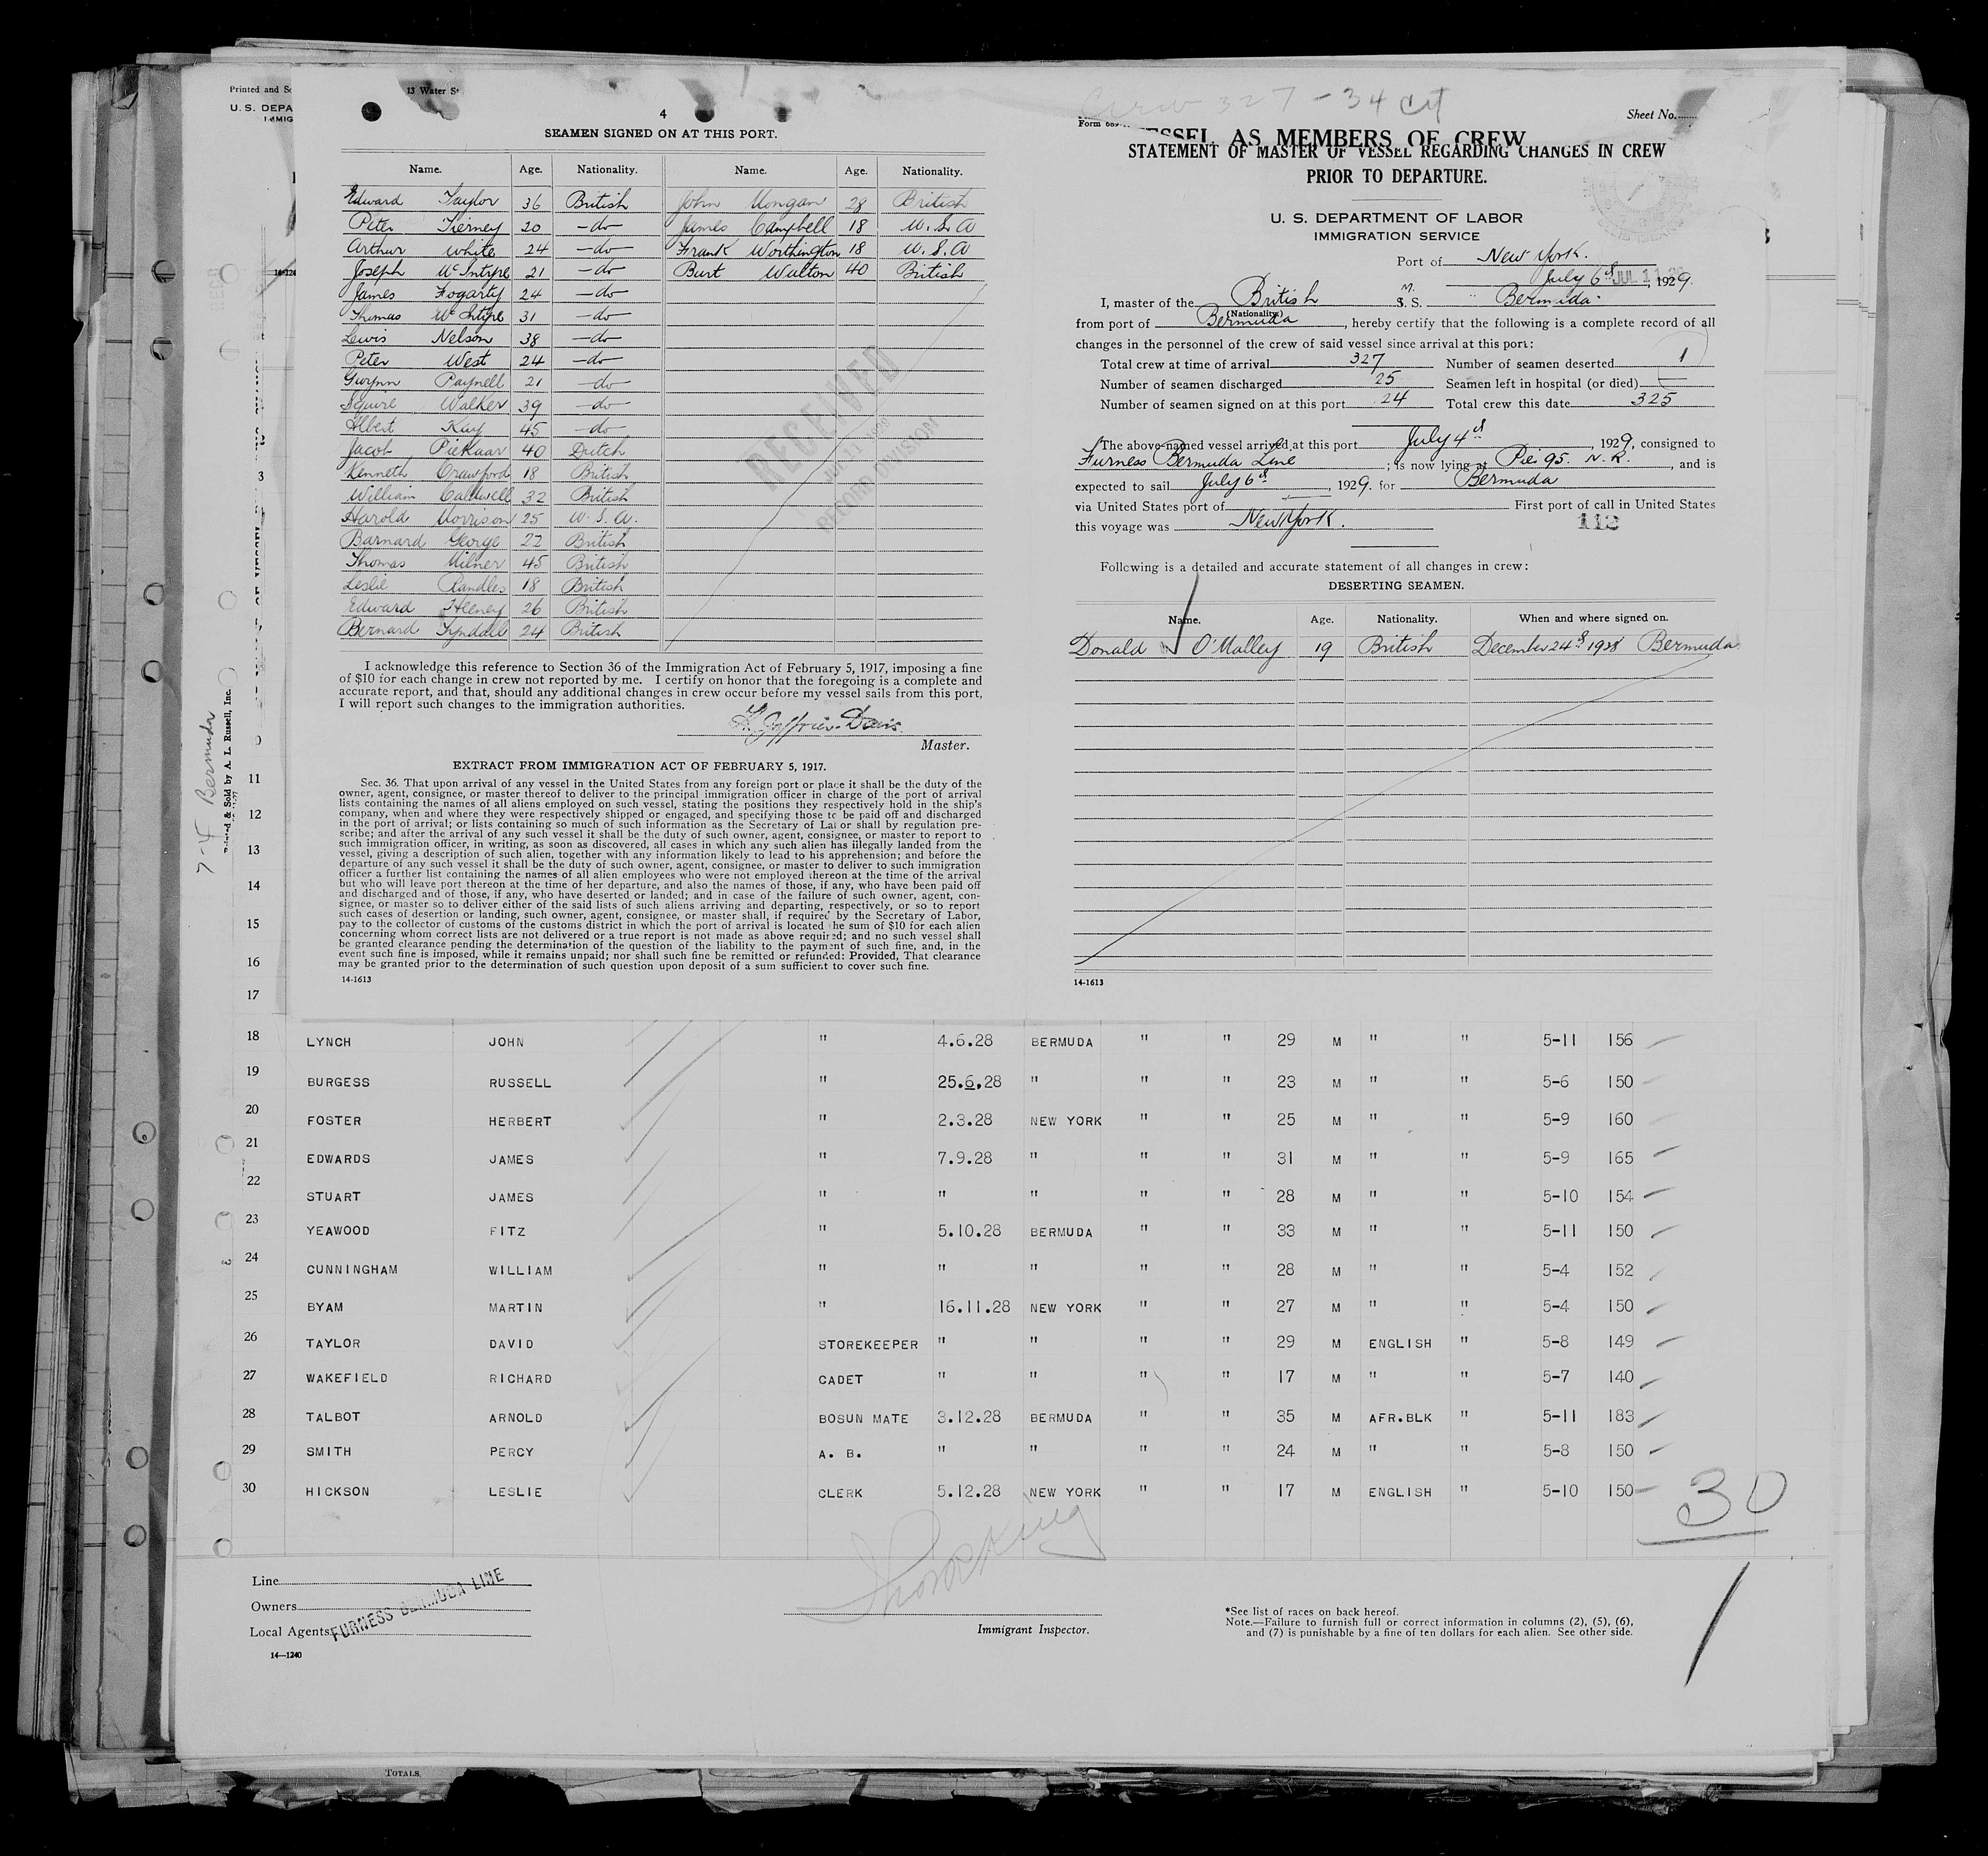 Printed and
13 Water St
U. S. DEPA
IMMIG
4
SEAMEN SIGNED ON AT THIS PORT.
Name. Age. Nationality. Name. Age. Nationality.
Edward Taylor 36 British John Mongan 28 British
Peter Tierney 20 -do- James Campbell 18 U.S.A
Arthur White 24 -do- Frank Worthington 18 U.S.A
Joseph McIntyre 21 -do- Burt Walton 40 British
James Fogarty 24 -do-
Thomas McIntyre 31 -do-
Lewis Nelson 38 -do-
Peter West 24 -do-
Gwynn Paynell 21 -do-
Squire Walker 39 -do-
Albert Kay 45 -do-
Jacob Piekaar 40 Dutch
Kenneth Crawford 18 British
William Caldwell 32 British
Harold Morrison 25 U.S.A.
Barnard George 22 British
Thomas Milner 45 British
Leslie Randles 18 British
Edward Heeney 26 British
Bernard Tyndall 24 British
RECEIVED
RECORD DIVISION
I acknowledge this reference to Section 36 of the Immigration Act of February 5, 1917, imposing a fine
of $10 for each change in crew not reported by me. I certify on honor that the foregoing is a complete and
accurate report, and that, should any additional changes in crew occur before my vessel sails from this port,
I will report such changes to the immigration authorities.
H. Jeffries-Davis
Master.
EXTRACT FROM IMMIGRATION ACT OF FEBRUARY 5, 1917.
Sec. 36. That upon arrival of any vessel in the United States from any foreign port or place it shall be the duty of the
owner, agent, consignee, or master thereof to deliver to the principal immigration officer in charge of the port of arrival
lists containing the names of all aliens employed on such vessel, stating the positions they respectively hold in the ship's
company, when and where they were respectively shipped or engaged, and specifying those to be paid off and discharged
in the port of arrival; or lists containing so much of such information as the Secretary of Labor shall by regulation pre-
scribe; and after the arrival of any such vessel it shall be the duty of such owner, agent, consignee, or master to report to
such immigration officer, in writing, as soon as discovered, all cases in which any such alien has illegally landed from the
vessel, giving a description of such alien, together with any information likely to lead to his apprehension; and before the
departure of any such vessel it shall be the duty of such owner, agent, consignee, or master to deliver to such immigration
officer a further list containing the names of all alien employees who were not employed thereon at the time of the arrival
but who will leave port thereon at the time of her departure, and also the names of those, if any, who have been paid off
and discharged and of those, if any, who have deserted or landed; and in case of the failure of such owner, agent, con-
signee, or master so to deliver either of the said lists of such aliens arriving and departing, respectively, or so to report
such cases of desertion or landing, such owner, agent, consignee, or master shall, if required by the Secretary of Labor,
pay to the collector of customs of the customs district in which the port of arrival is located the sum of $10 for each alien
concerning whom correct lists are not delivered or a true report is not made as above required; and no such vessel shall
be granted clearance pending the determination of the question of the liability to the payment of such fine, and, in the
event such fine is imposed, while it remains unpaid; nor shall such fine be remitted or refunded: Provided, That clearance
may be granted prior to the determination of such question upon deposit of a sum sufficient to cover such fine.
14-1613
Crew 327-34
Sheet No.
VESSEL AS MEMBERS OF CREW
STATEMENT OF MASTER OF VESSEL REGARDING CHANGES IN CREW
PRIOR TO DEPARTURE.
U. S. DEPARTMENT OF LABOR
IMMIGRATION SERVICE
Port of New York.
July 6th, 1929.
I, master of the British M. S. S. " Bermuda.
(Nationality)
from port of Bermuda, hereby certify that the following is a complete record of all
changes in the personnel of the crew of said vessel since arrival at this port:
Total crew at time of arrival 327 Number of seamen deserted 1
Number of seamen discharged 25 Seamen left in hospital (or died) —
Number of seamen signed on at this port 24 Total crew this date 325
The above-named vessel arrived at this port July 4th, 1929, consigned to
Furness Bermuda Line; is now lying at Pier 95. N.R., and is
expected to sail July 6th, 1929. for Bermuda
via United States port of — First port of call in United States
this voyage was New York.
112
Following is a detailed and accurate statement of all changes in crew:
DESERTING SEAMEN.
Name. Age. Nationality. When and where signed on.
Donald O'Malley 19 British December 24th 1928 Bermuda
14-1613
7-4 Bermuda
Printed & Sold by A. L. Russell, Inc.
3
11
12
13
14
15
16
17
18 LYNCH JOHN " 4.6.28 BERMUDA " " 29 M " " 5-11 156
19 BURGESS RUSSELL " 25.6.28 " " " 23 M " " 5-6 150
20 FOSTER HERBERT " 2.3.28 NEW YORK " " 25 M " " 5-9 160
21 EDWARDS JAMES " 7.9.28 " " " 31 M " " 5-9 165
22 STUART JAMES " " " " " 28 M " " 5-10 154
23 YEAWOOD FITZ " 5.10.28 BERMUDA " " 33 M " " 5-11 150
24 CUNNINGHAM WILLIAM " " " " " 28 M " " 5-4 152
25 BYAM MARTIN " 16.11.28 NEW YORK " " 27 M " " 5-4 150
26 TAYLOR DAVID STOREKEEPER " " " " 29 M ENGLISH " 5-8 149
27 WAKEFIELD RICHARD CADET " " " " 17 M " " 5-7 140
28 TALBOT ARNOLD BOSUN MATE 3.12.28 BERMUDA " " 35 M AFR.BLK " 5-11 183
29 SMITH PERCY A. B. " " " " 24 M " " 5-8 150
30 HICKSON LESLIE CLERK 5.12.28 NEW YORK " " 17 M ENGLISH " 5-10 150
30
Line
Owners
Local Agents
FURNESS BERMUDA LINE
14—1240
Immigrant Inspector.
*See list of races on back hereof.
Note.—Failure to furnish full or correct information in columns (2), (5), (6),
and (7) is punishable by a fine of ten dollars for each alien. See other side.
TOTALS